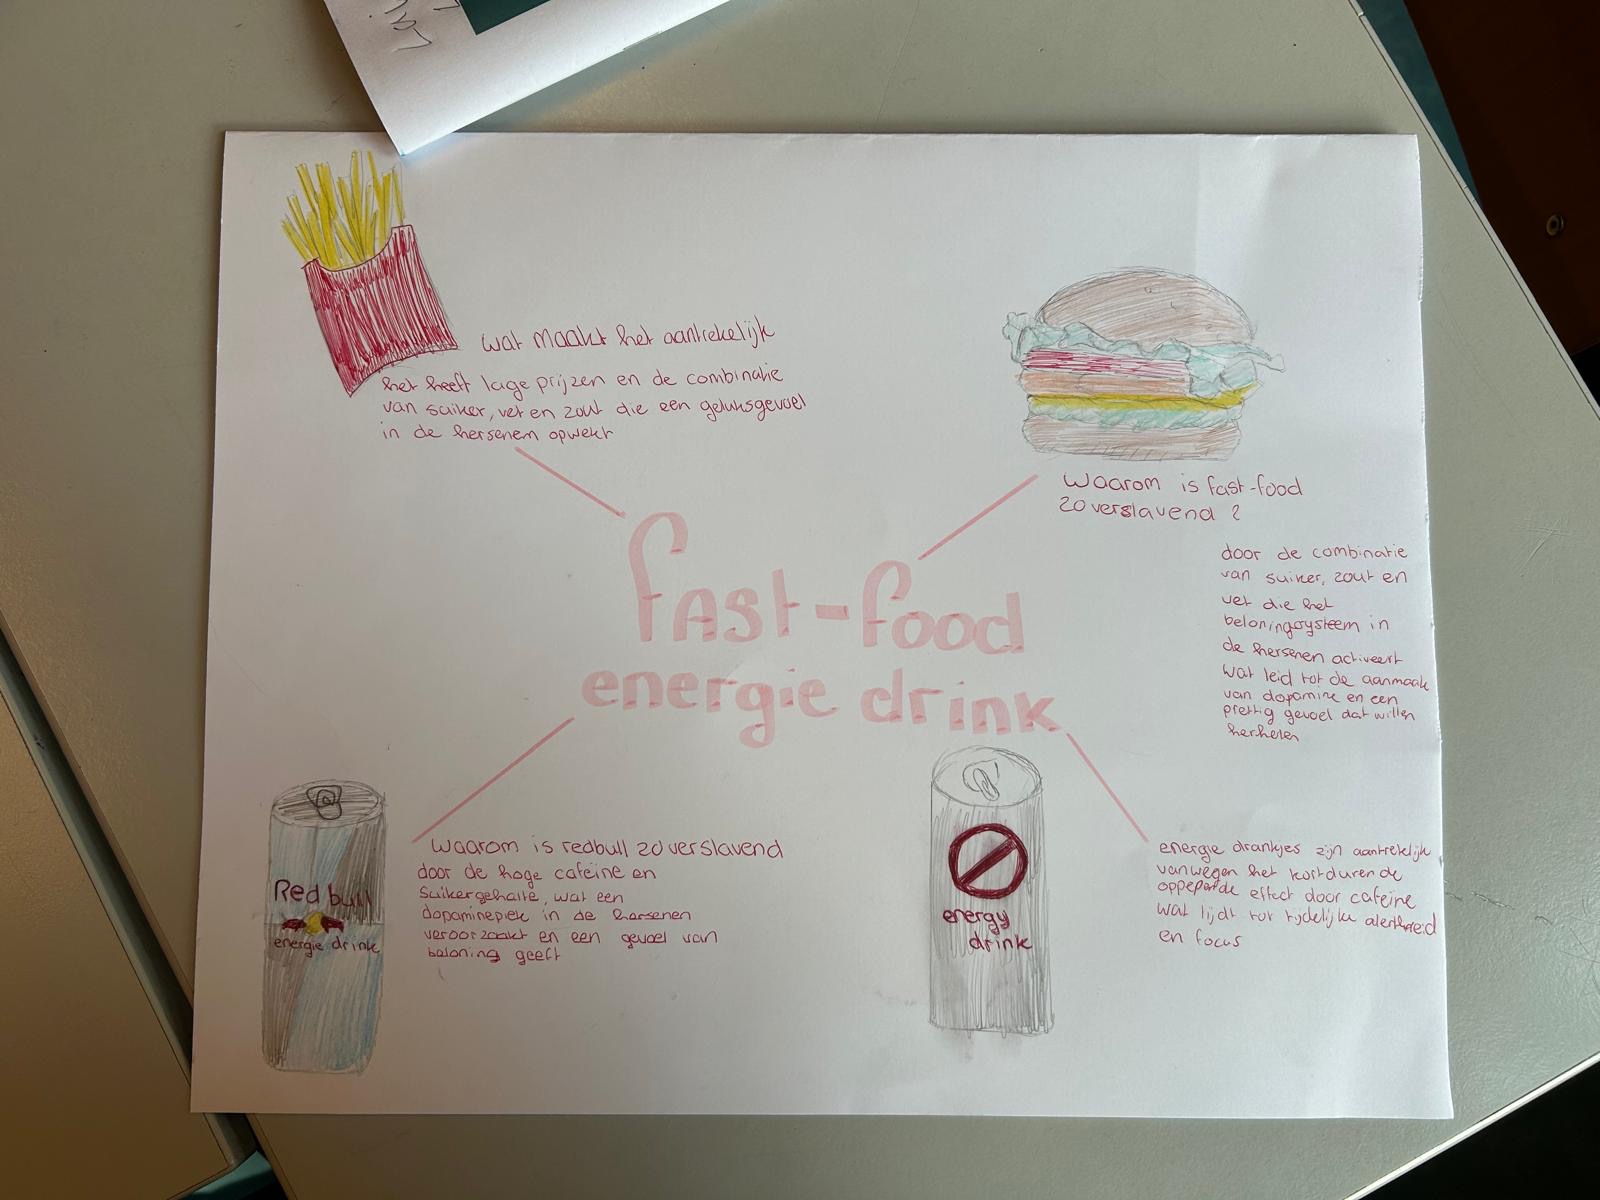 wat maakt het aantrekelijk
het heeft lage prijzen en de combinatie
van suiker, vet en zout die een geluksgevoel
in de hersenen opwekt
waarom is fast-food
zo verslavend ?
door de combinatie
van suiker, zout en
vet die het
beloningsysteem in
de hersenen activeert
wat leid tot de aanmaak
van dopamine en een
prettig gevoel dat willen
herhelen
fast-food
energie drink
Red bull
energie drink
waarom is redbull zo verslavend
door de hoge cafeïne en
suikergehalte, wat een
dopaminepiek in de hersenen
veroorzaakt en een gevoel van
beloning geeft
energy
drink
energie drankjes zijn aantrekelijk
vanwegen het kortdurende
oppeppende effect door cafeïne
wat lijdt tot tijdelijke alertheid
en focus